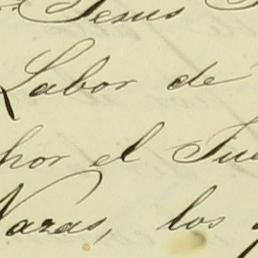 Jesus
Labor de
por el Jue
Nazas, los